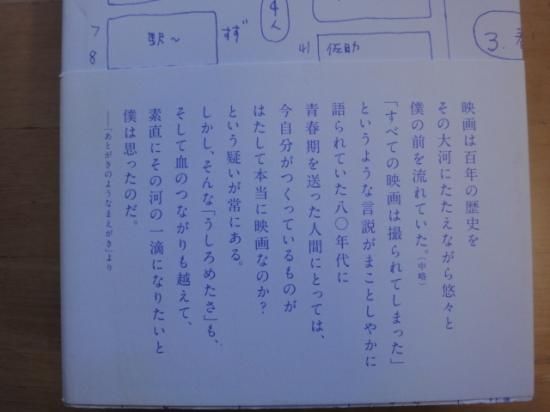 7
8
駅〜
ずず
4人
41
佐助
3.
映画は百年の歴史を
その大河にたたえながら悠々と
僕の前を流れていた。(中略)
「すべての映画は撮られてしまった」
というような言説がまことしやかに
語られていた八〇年代に
青春期を送った人間にとっては、
今自分がつくっているものが
はたして本当に映画なのか?
という疑いが常にある。
しかし、そんな「うしろめたさ」も、
そして血のつながりも越えて、
素直にその河の一滴になりたいと
僕は思ったのだ。
――「あとがきのようなまえがき」より